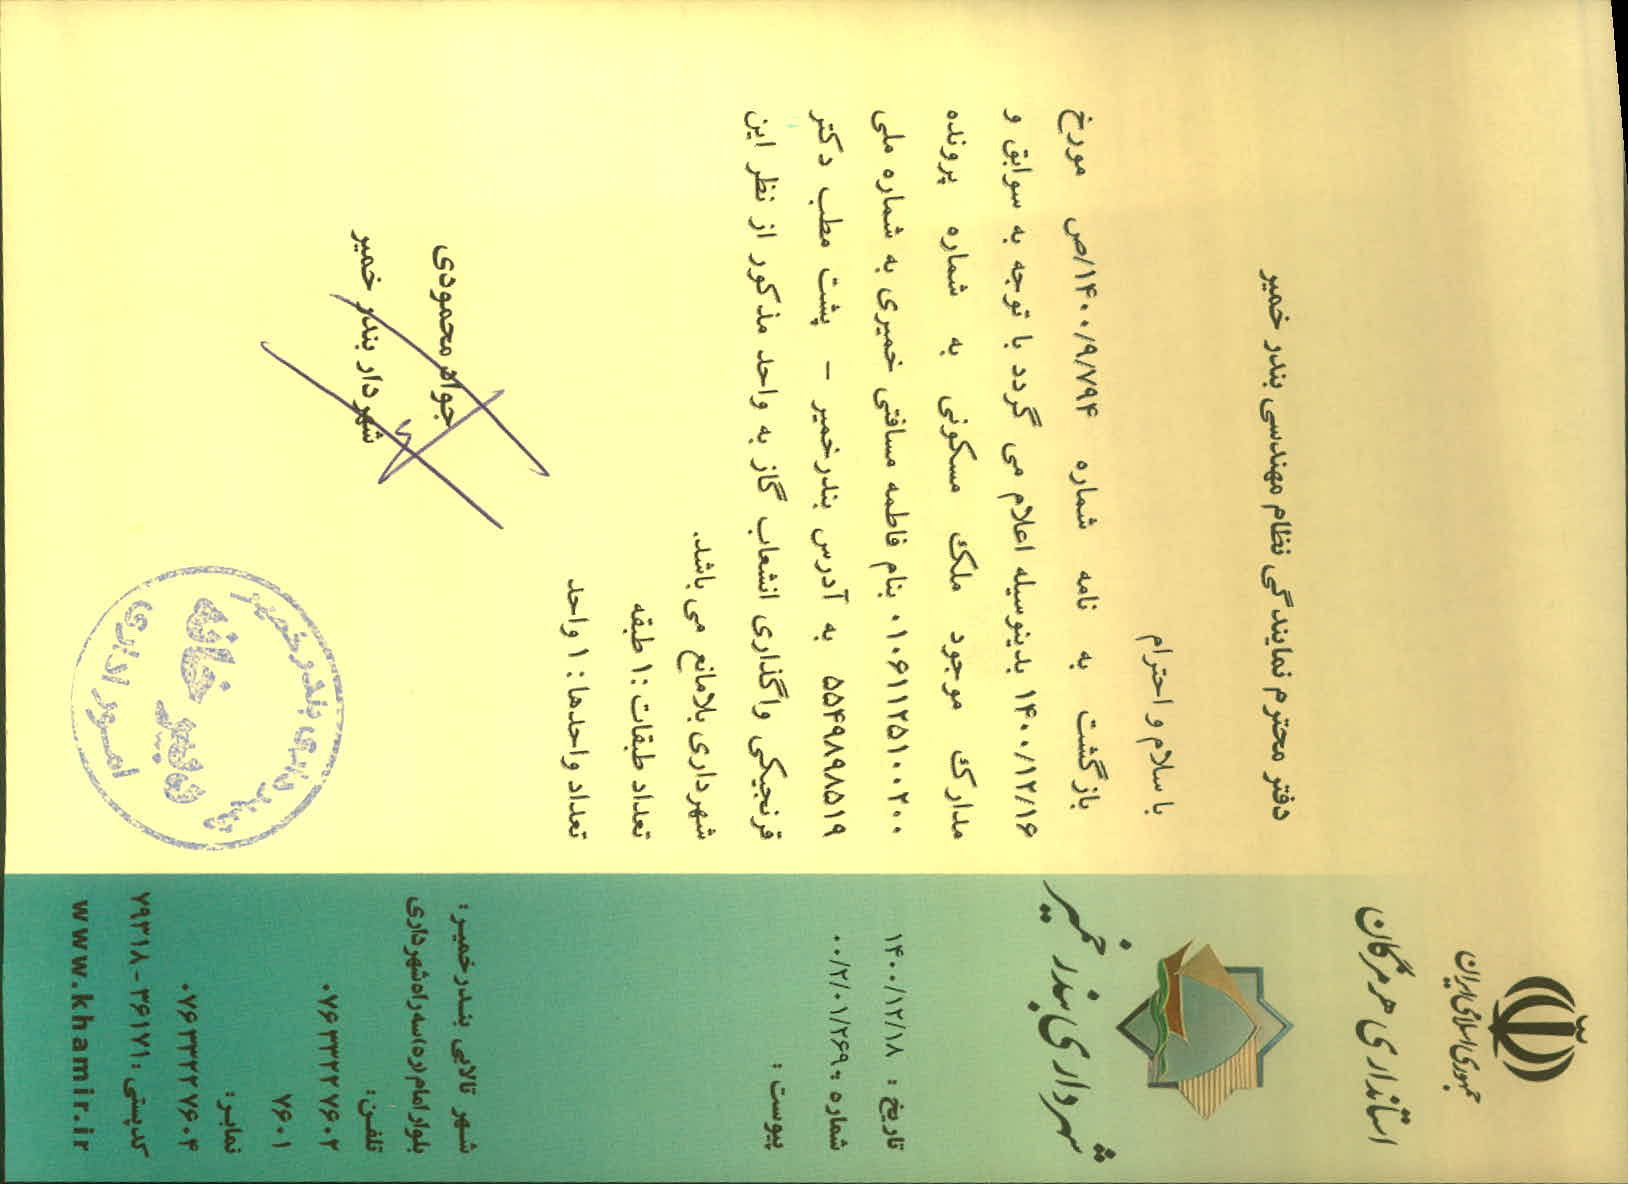 جمهوری اسلامی ایران
استانداری هرمزگان
شهرداری بندر خمیر
تاریخ : ۱۴۰۰/۱۲/۱۸
شماره : ۰۰/۲/۰۱/۲۶۹۰
پیوست :
دفتر محترم نمایندگی نظام مهندسی بندر خمیر
با سلام و احترام
بازگشت به نامه شماره ۱۴۰۰/۹/۷۹۴/ص مورخ
۱۴۰۰/۱۲/۱۶ بدینوسیله اعلام می گردد با توجه به سوابق و
مدارک موجود ملک مسکونی به شماره پرونده
۰۱۰۶۱۱۲۵۱۰۰۲۰۰ بنام فاطمه مسافتی خمیری به شماره ملی
۵۵۴۹۸۹۸۵۱۹ به آدرس بندرخمیر – پشت مطب دکتر
قرنجیکی واگذاری انشعاب گاز به واحد مذکور از نظر این
شهرداری بلامانع می باشد.
تعداد طبقات :۱ طبقه
تعداد واحدها : ۱ واحد
جواد محمودی
شهردار بندر خمیر
شهرداری بندر خمیر
دبیرخانه
امور اداری
شهر تالابی بندرخمیر :
بلوار امام (ره) سه راه شهرداری
تلفن:
۰۷۶۳۳۲۲۷۶۰۲
۷۶۰۱
نمابر:
۰۷۶۳۳۲۲۷۶۰۴
کدپستی : ۳۶۱۷۱-۷۹۳۱۸
www.khamir.ir